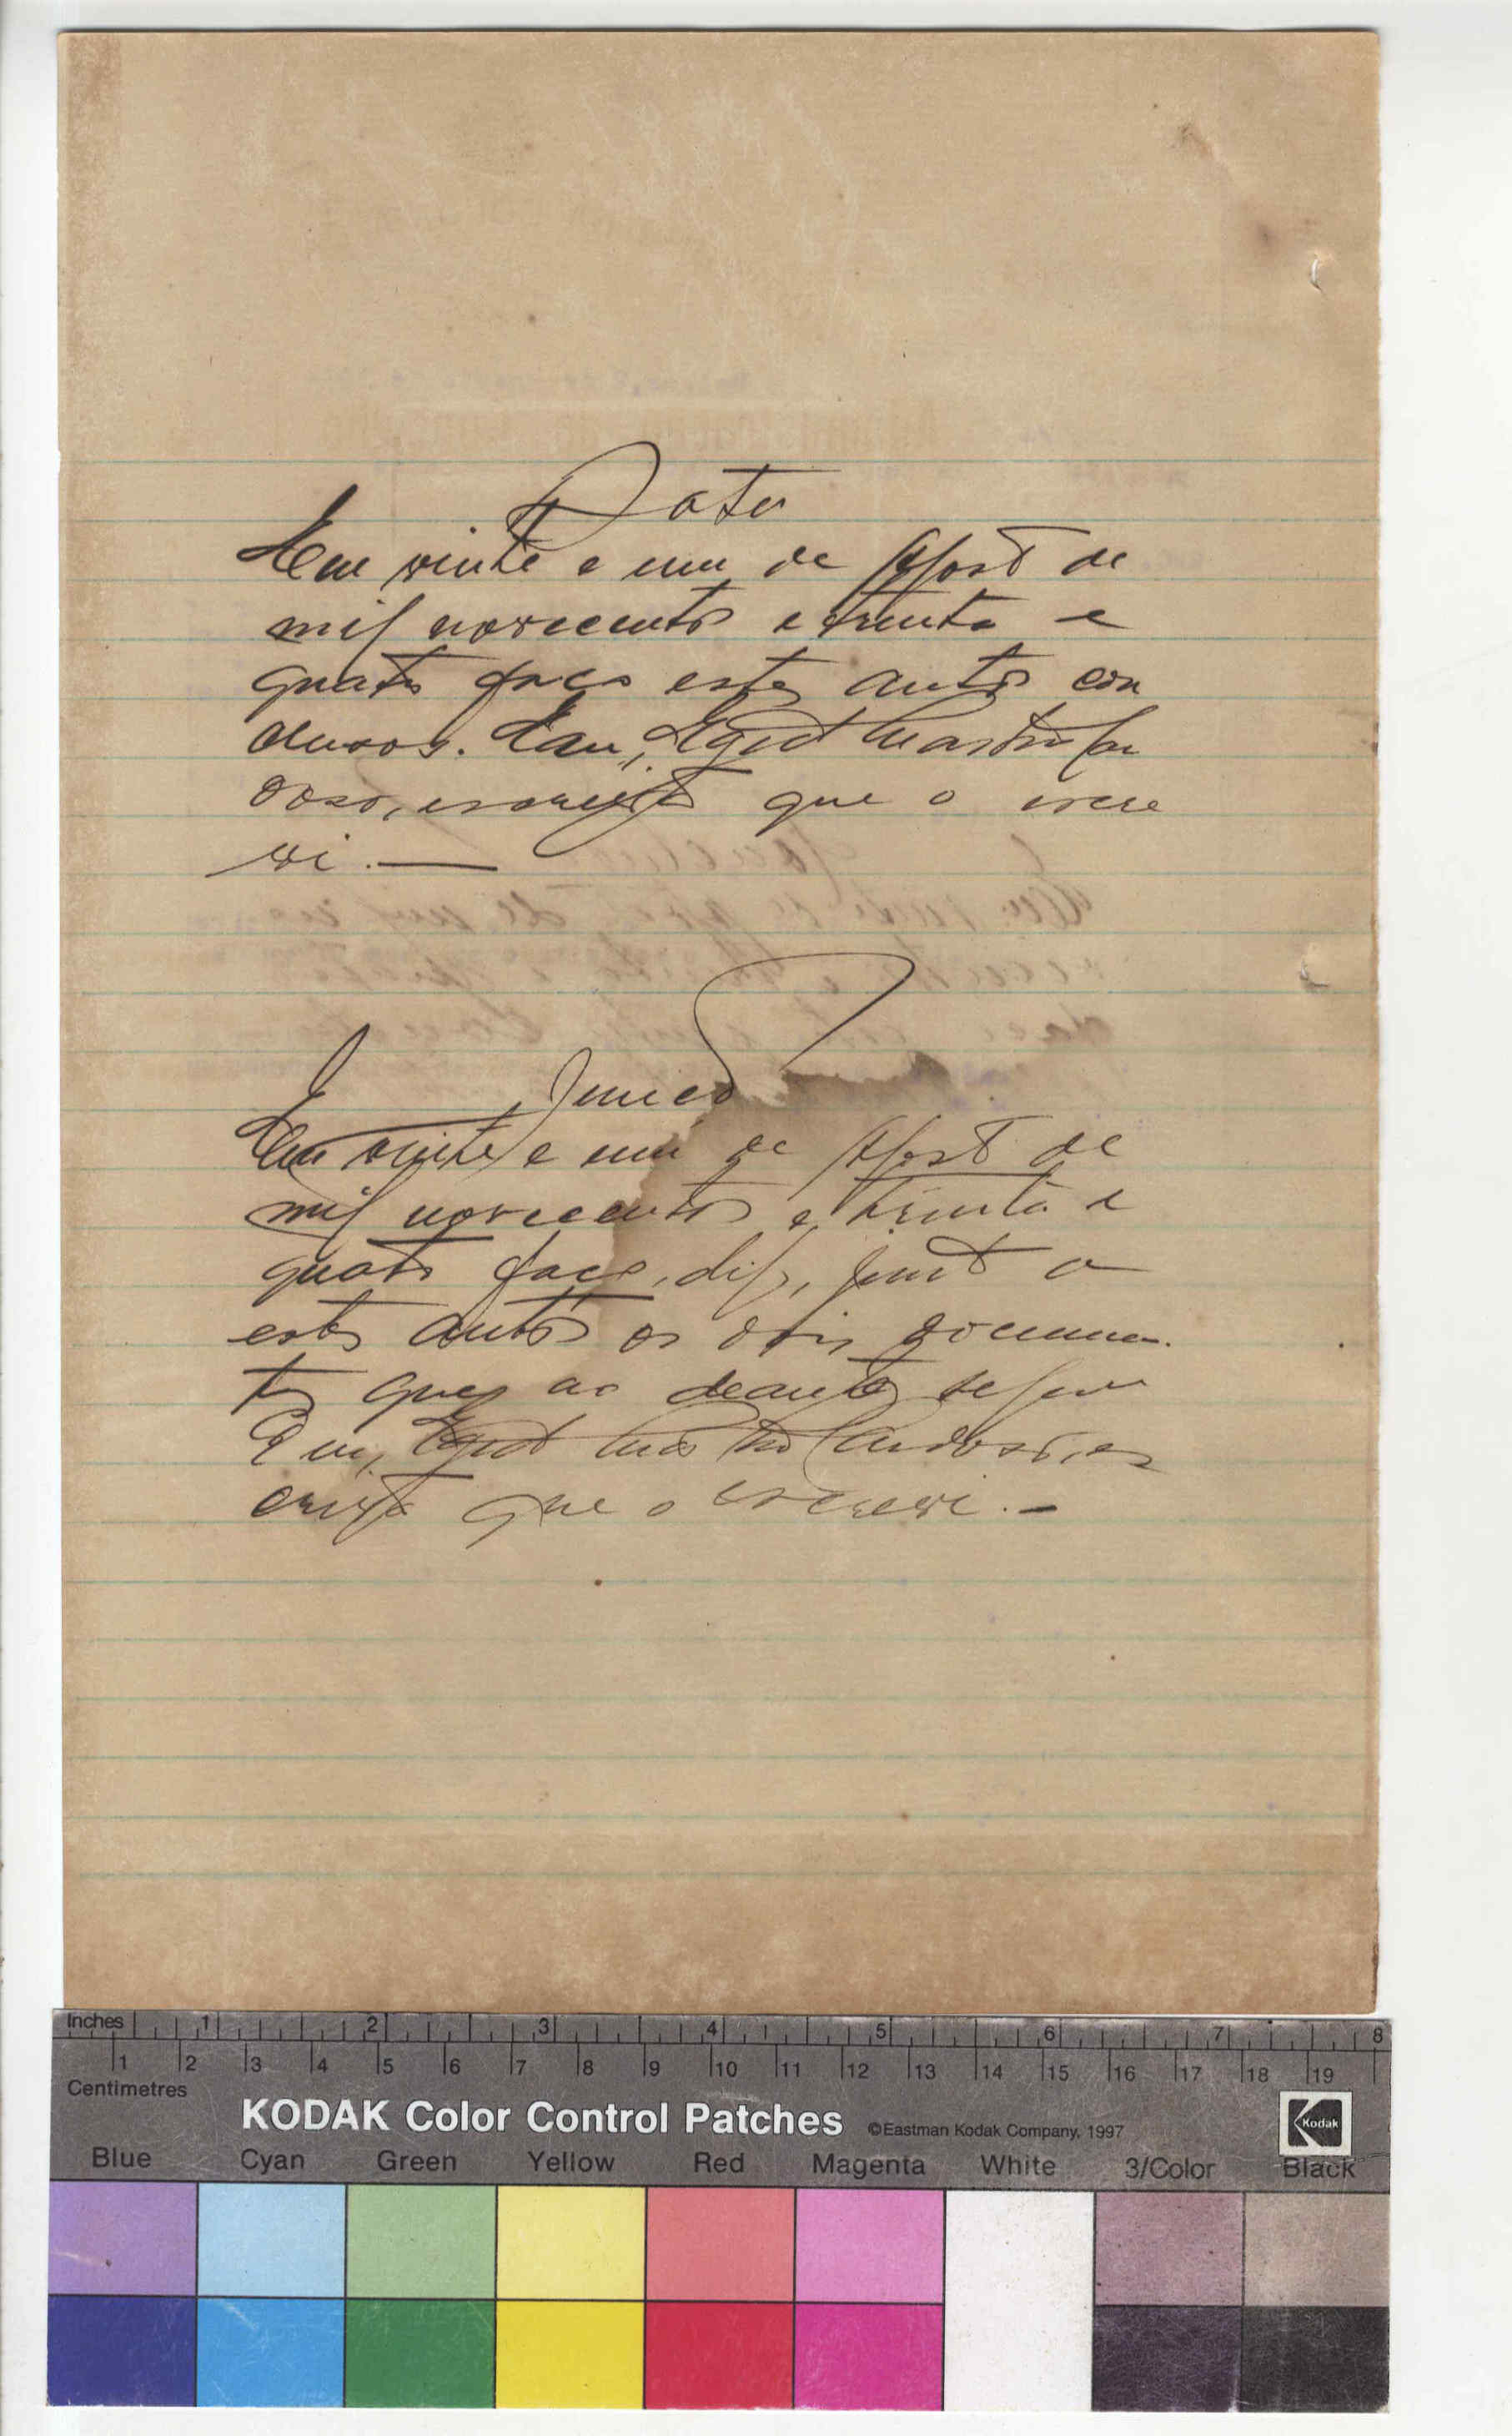 Data
Em vinte e um de Agosto de
mil novecentos e trinta e
quatro faço estes autos con
clusos. Eu, Egidio Castro Car
doso, escrivão que o escre
vi. —
Juncção
Em vinte e um de Agosto de
mil novecentos e trinta e
quatro faço, digo, junto a
estes autos os dois documen-
tos que ao deante seguem
Eu, Castro Cardoso, es
crivão que o escrevi. —
Inches 1 2 3 4 5 6 7 8
1 2 3 4 5 6 7 8 9 10 11 12 13 14 15 16 17 18 19
Centimetres
KODAK Color Control Patches ©Eastman Kodak Company, 1997 Kodak
Blue Cyan Green Yellow Red Magenta White 3/Color Black